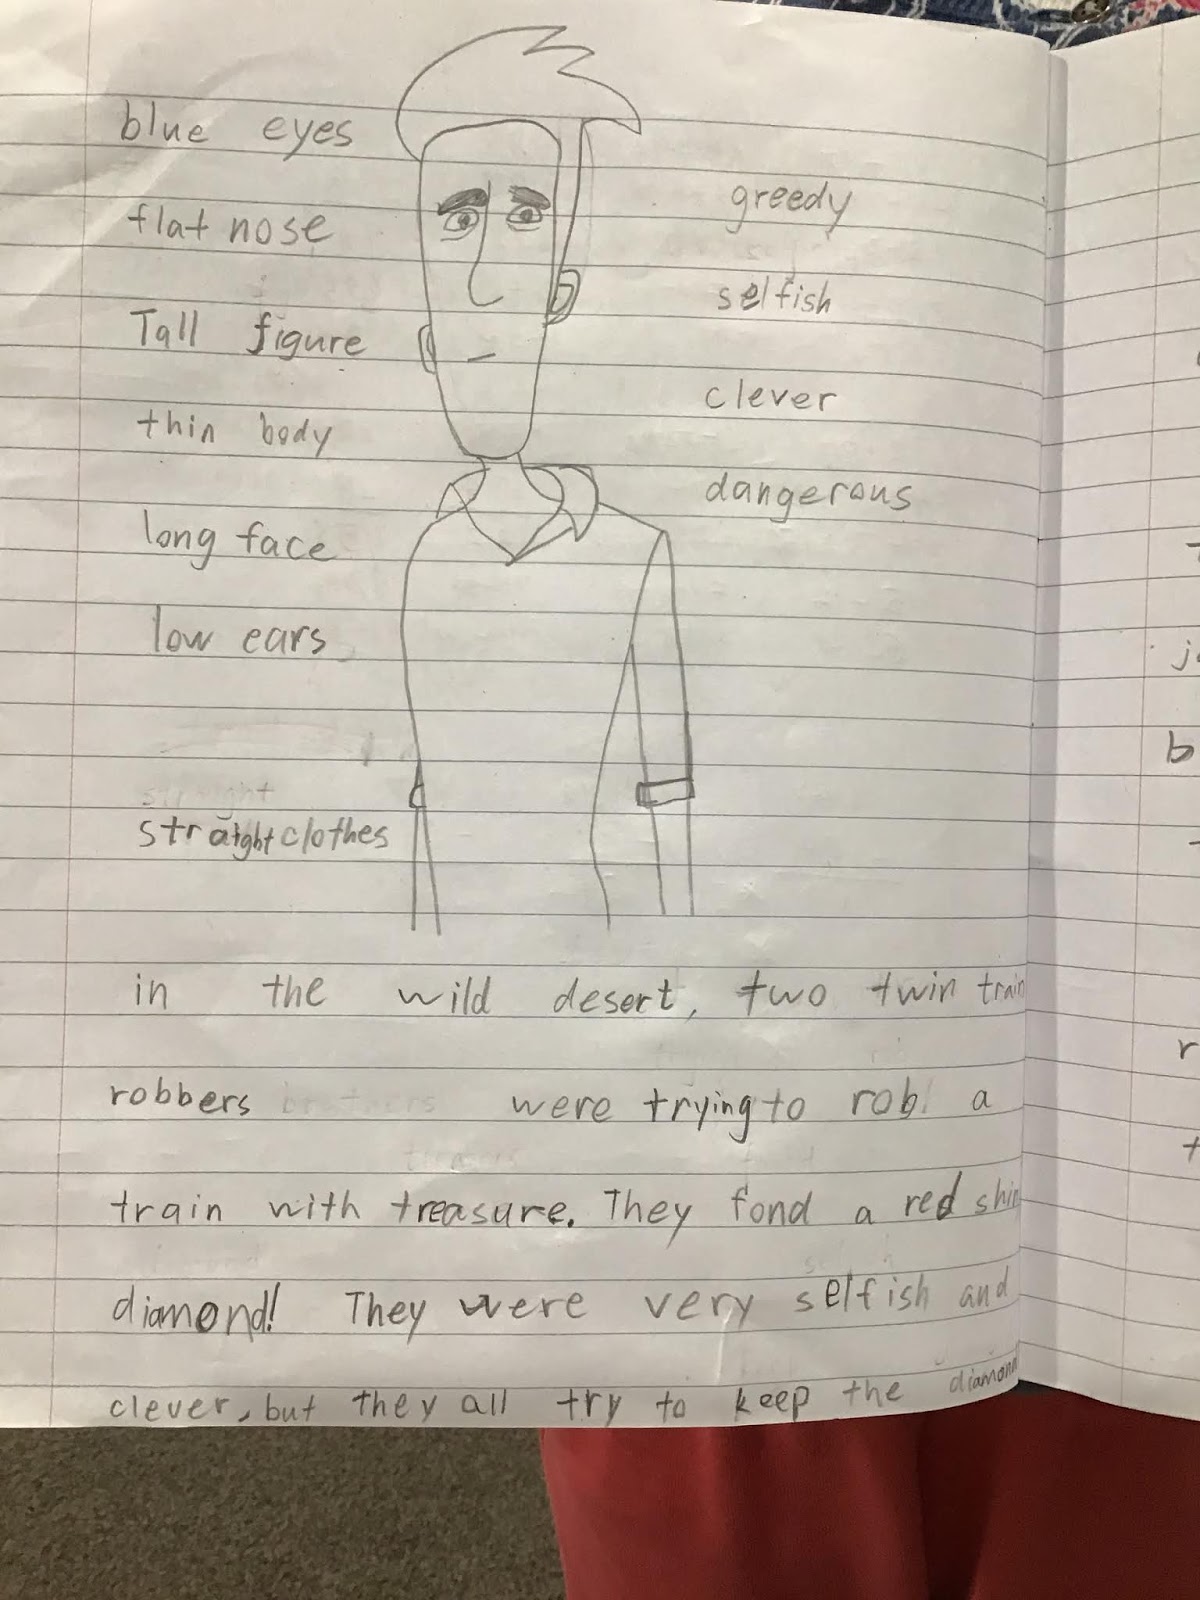 blue eyes
flat nose
Tall figure
thin body
long face
low ears
straight
straightclothes
greedy
selfish
clever
dangerous
in the wild desert, two twin train
robbers brothers were trying to rob a
train with treasure. They fond a red shin
diamond! They were very selfish and
clever, but they all try to keep the diamond
b
r